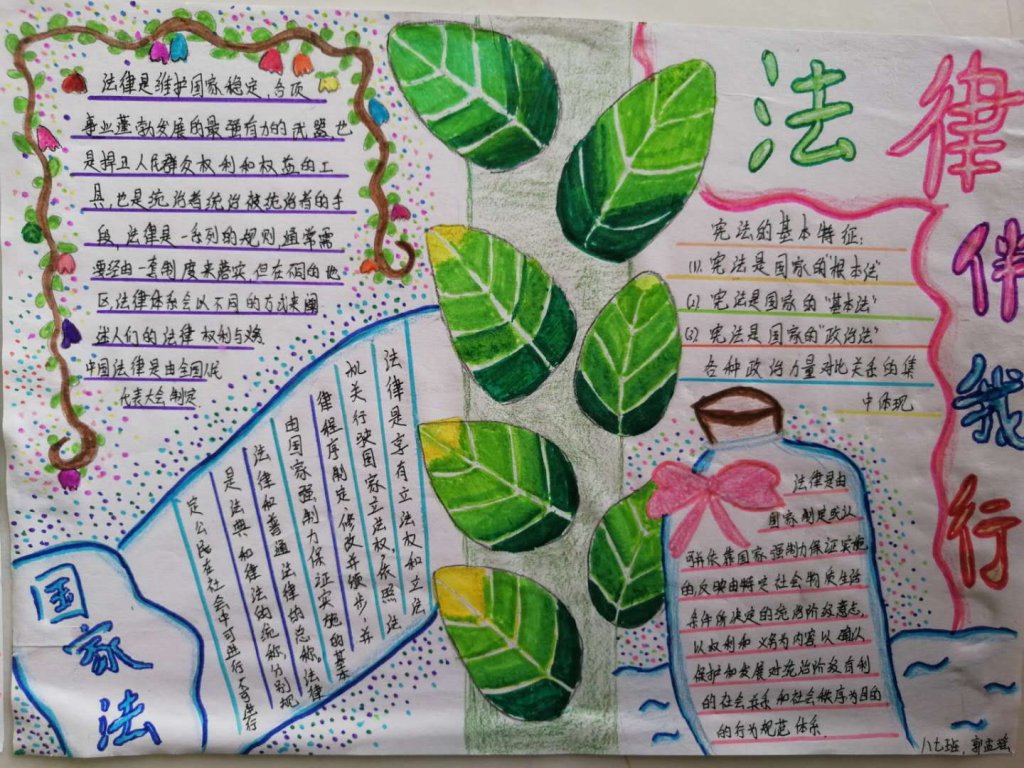 法律伴我行
法律是维护国家稳定、各项
事业蓬勃发展的最强有力的武器,也
是捍卫人民群众权利和权益的工
具,也是统治者统治被统治者的手
段,法律是一系列的规则,通常需
要经由一套制度来落实,但在不同的地
区,法律体系会以不同的方式来阐
述人们的法律权利与义务
中国法律是由全国人民
代表大会制定
宪法的基本特征:
(1)、宪法是国家的"根本法"
(2)宪法是国家的"基本法"
(3)宪法是国家的"政治法"
各种政治力量对比关系的集
中体现
国家法
法律是享有立法权和立法
机关行驶国家立法权,依照法
律程序制定、修改并颁步,并
由国家强制力保证实施的基本
法律和普通法律的总称。法律
是法典和律法的统称,分别规
定公民在社会中可进行不可进行
法律是由
国家制定或认
可并依靠国家强制力保证实施
的,反映由特定社会物质生活
条件所决定的统治阶级意志,
以权利和义务为内容,以确认
保护和发展对统治阶级有利
的社会关系和社会秩序为目的
的行为规范体系.
八七班,郭孟瑶